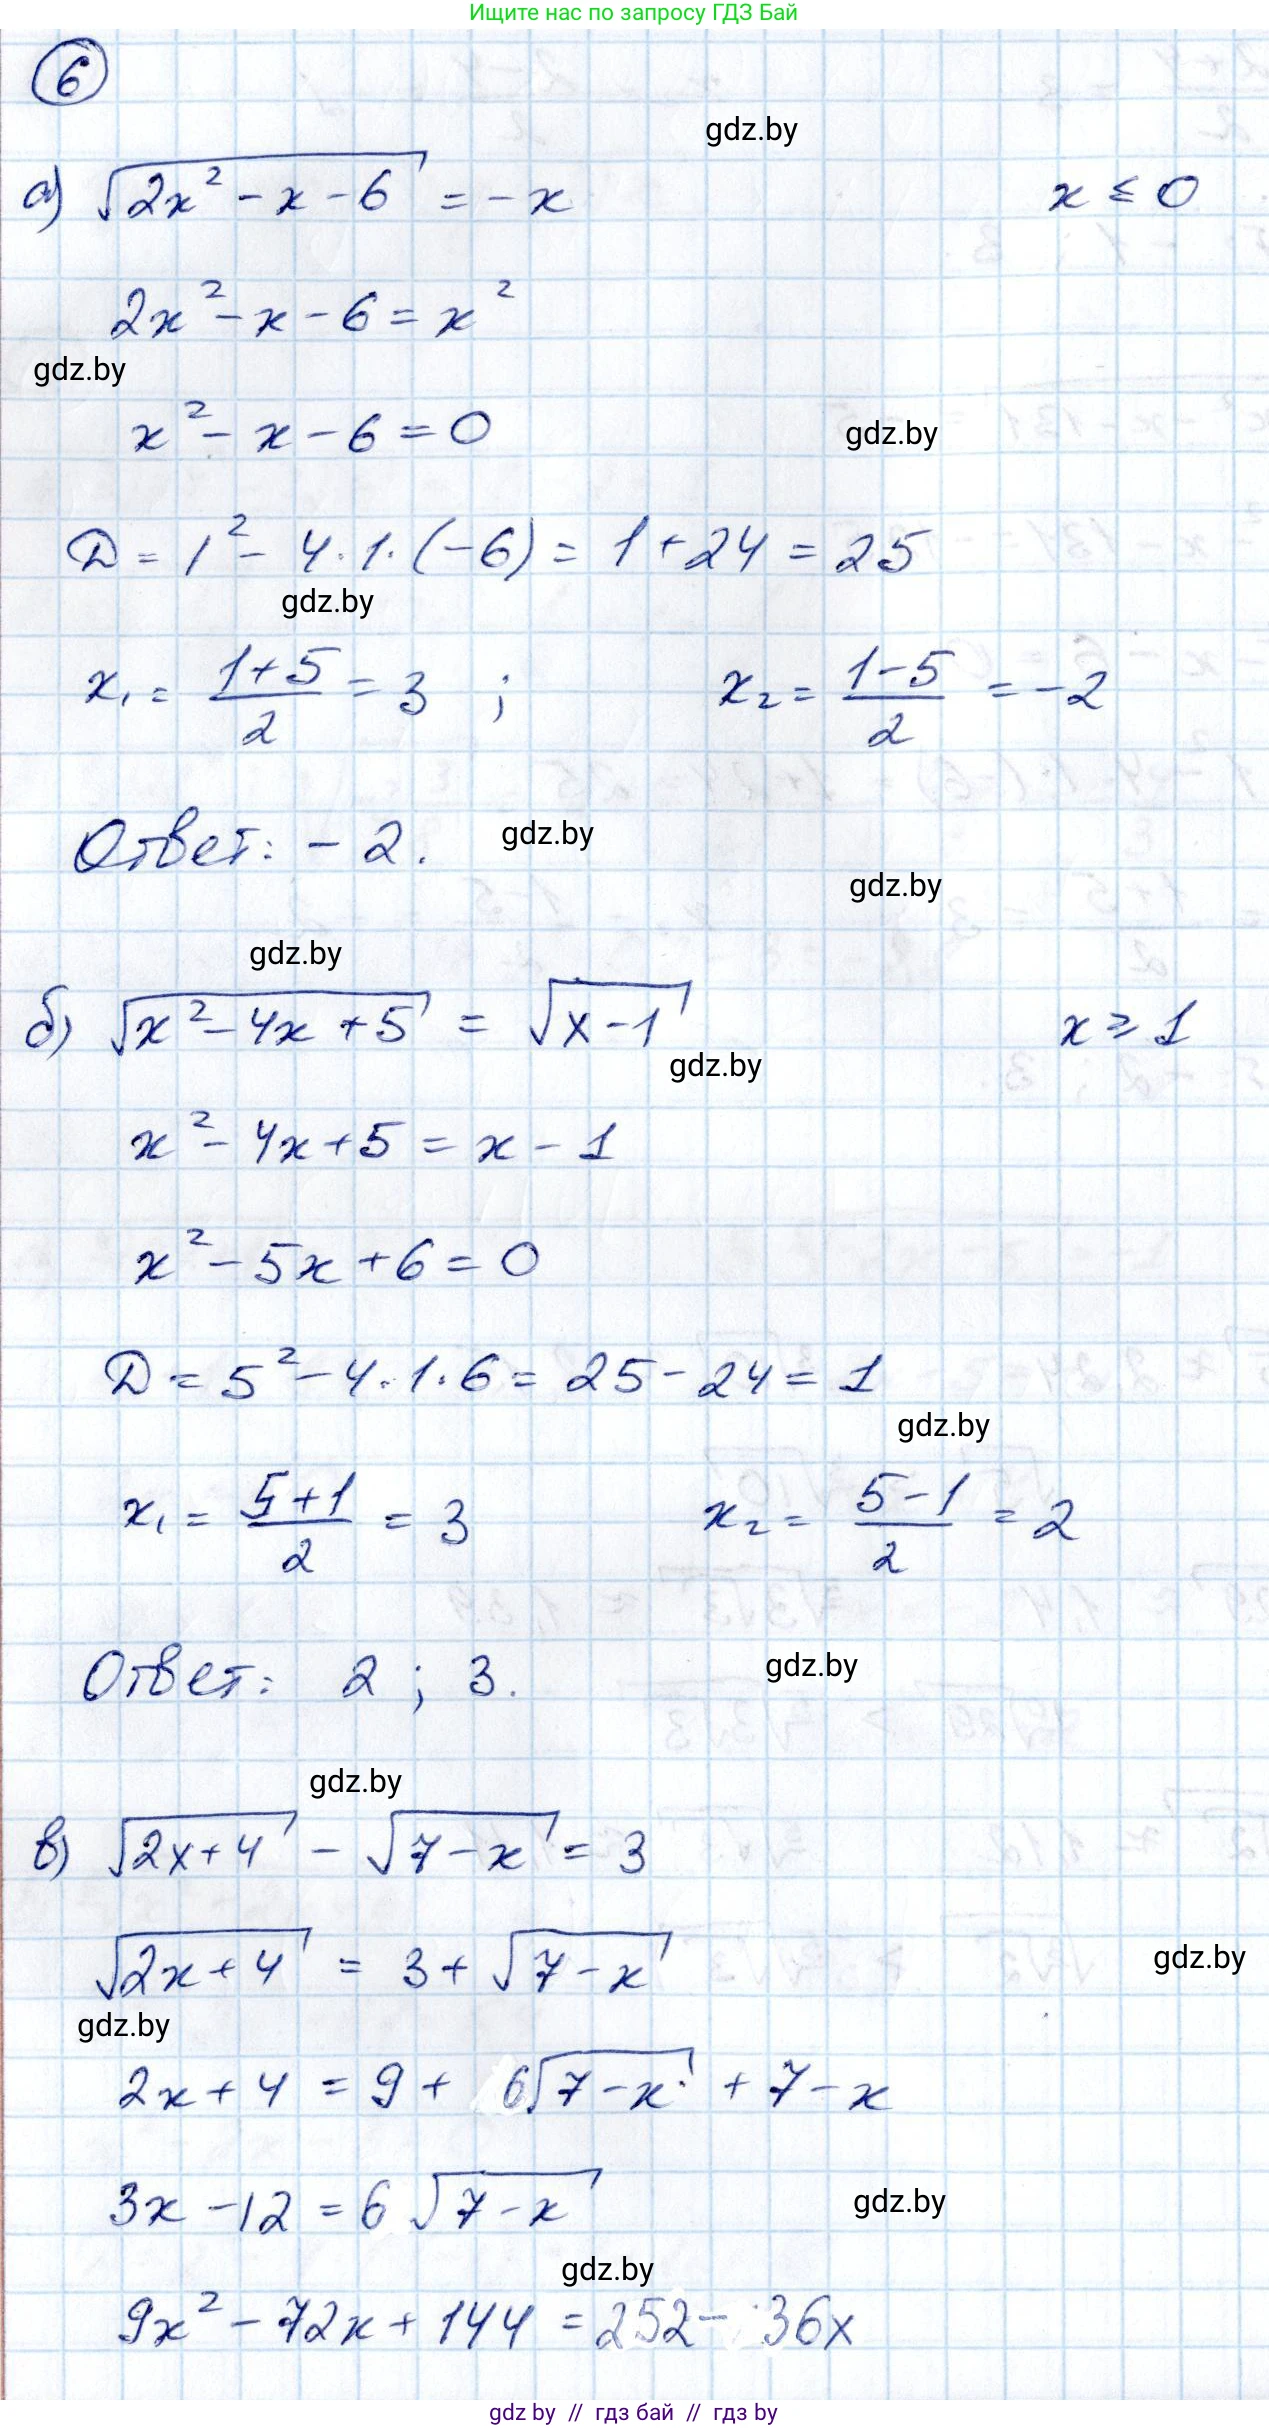 Ищите нас по запросу ГДЗ Бай
6
gdz.by
а) √(2x² - x - 6) = -x x ≤ 0
2x² - x - 6 = x²
gdz.by
x² - x - 6 = 0
gdz.by
D = 1² - 4·1·(-6) = 1 + 24 = 25
gdz.by
x₁ = (1+5)/2 = 3 ; x₂ = (1-5)/2 = -2
Ответ: -2.
gdz.by
gdz.by
gdz.by
б) √(x² - 4x + 5) = √(x - 1) x ≥ 1
gdz.by
x² - 4x + 5 = x - 1
x² - 5x + 6 = 0
D = 5² - 4·1·6 = 25 - 24 = 1
gdz.by
x₁ = (5+1)/2 = 3 x₂ = (5-1)/2 = 2
Ответ: 2 ; 3.
gdz.by
gdz.by
в) √(2x+4) - √(7-x) = 3
√(2x+4) = 3 + √(7-x)
gdz.by
gdz.by
2x + 4 = 9 + 6√(7-x) + 7 - x
3x - 12 = 6√(7-x)
gdz.by
gdz.by
9x² - 72x + 144 = 252 - 36x
gdz by // гдз бай // гдз by